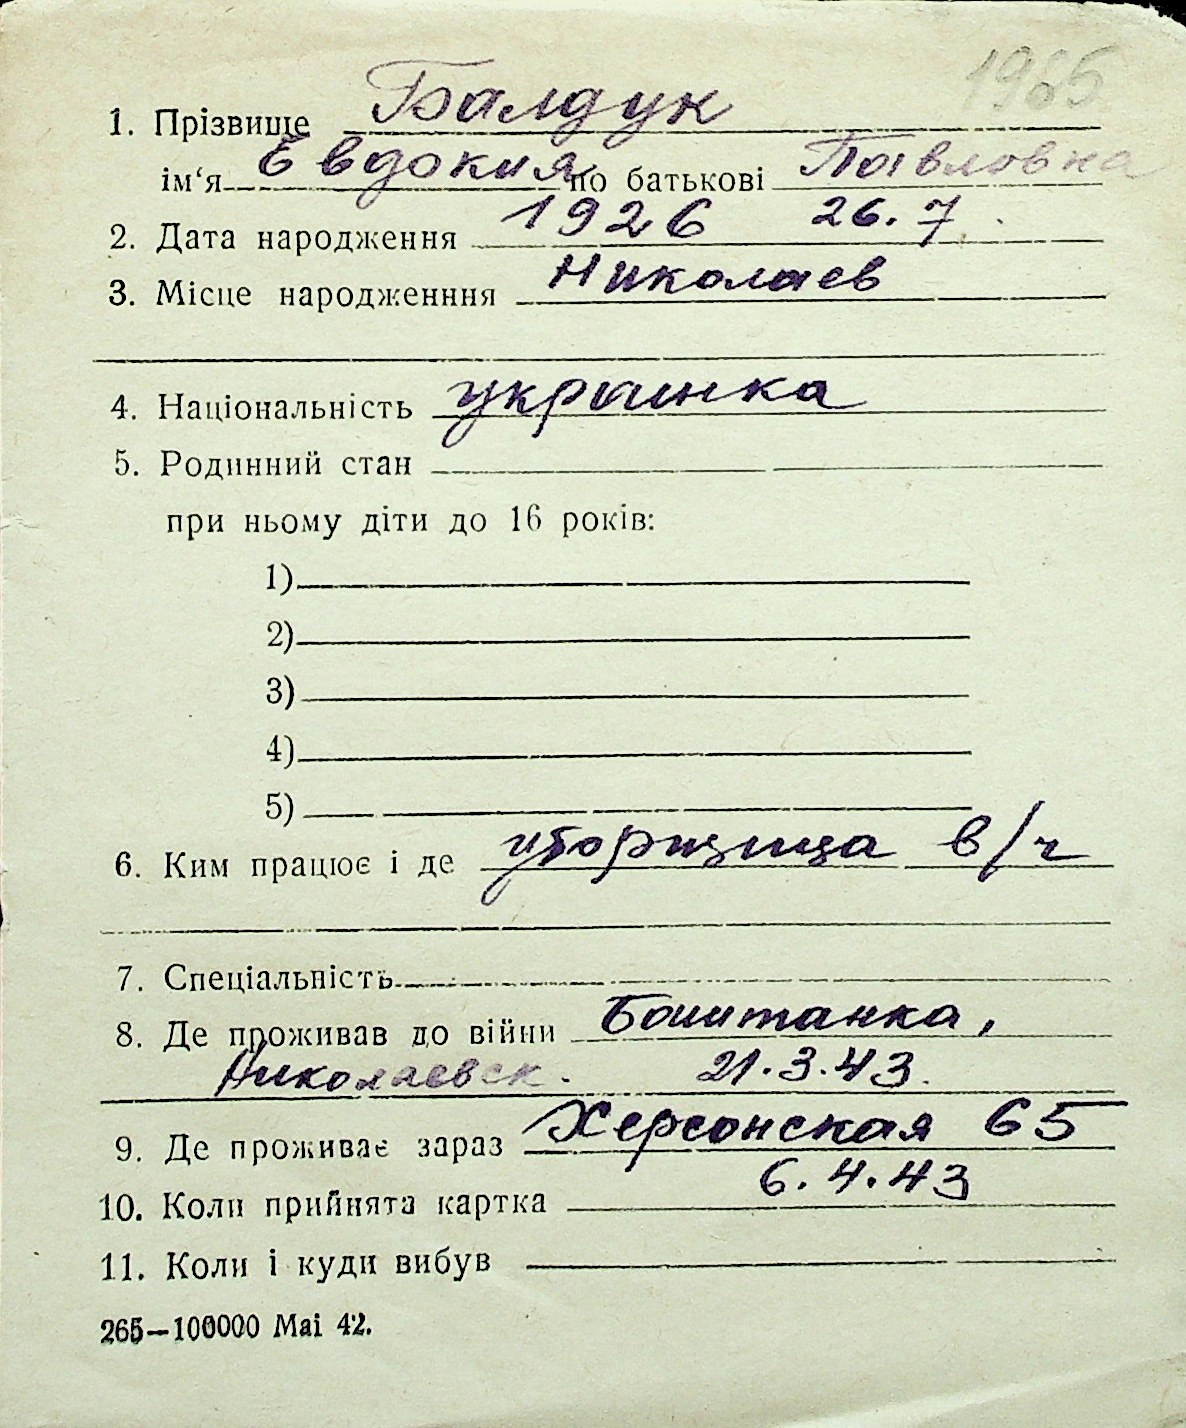 1965
1. Прізвище Балдук
ім‘я Евдокия по батькові Павловна
2. Дата народження 1926 26.7.
3. Місце народженння Николаев
4. Національність украинка
5. Родинний стан
при ньому діти до 16 років:
1)
2)
3)
4)
5)
6. Ким працює і де уборщица в/ч
7. Спеціальність
8. Де проживав до війни Баштанка,
Николаевск. 21.3.43.
9. Де проживає зараз Херсонская 65
10. Коли прийнята картка 6.4.43
11. Коли і куди вибув
265—100000 Mai 42.